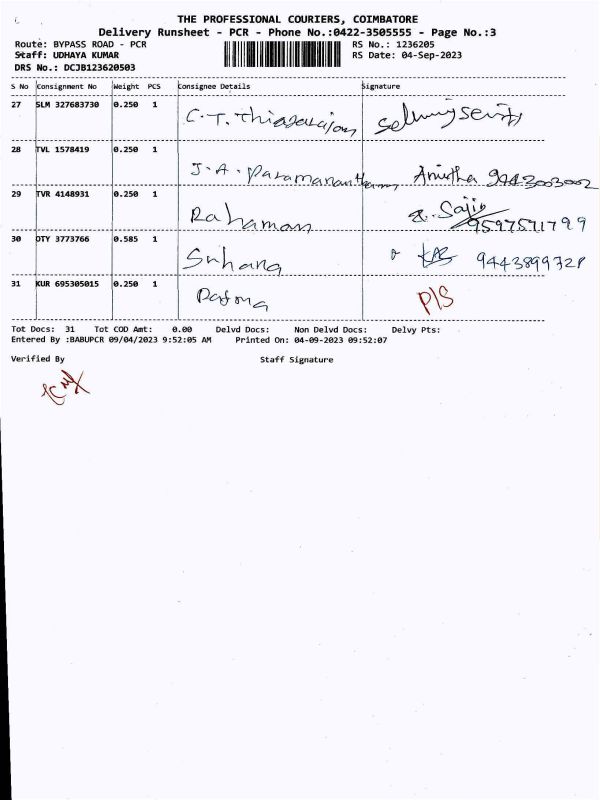 THE PROFESSIONAL COURIERS, COIMBATORE
Delivery Runsheet - PCR - Phone No.:0422-3505555 - Page No.:3
Route: BYPASS ROAD - PCR RS No.: 1236205
Staff: UDHAYA KUMAR RS Date: 04-Sep-2023
DRS No.: DCJB123620503
S No Consignment No Weight PCS Consignee Details Signature
27 SLM 327683730 0.250 1 C.T. Thiagarajan
28 TVL 1578419 0.250 1 J.A. Paramanantham Anutha 9443003002
29 TVR 4148931 0.250 1 Rahaman Sajip 9597571799
30 OTY 3773766 0.585 1 Suhana
31 KUR 695305015 0.250 1 P/S
Tot Docs: 31 Tot COD Amt: 0.00 Delvd Docs: Non Delvd Docs: Delvy Pts:
Entered By :BABUPCR 09/04/2023 9:52:05 AM Printed On: 04-09-2023 09:52:07
Verified By Staff Signature